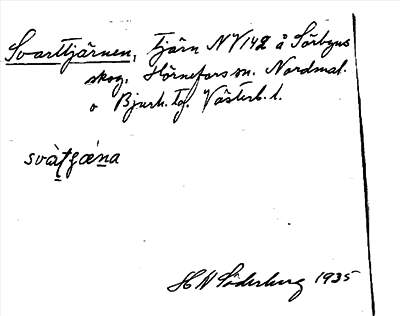 Svarttjärnen, Tjärn NV142 å Sörbyns
skog, Hörnefors sn. Nordmal.
o Bjurh. tg. Västerb. l.
svàʈʂæ̀na
H N Söderberg 1935